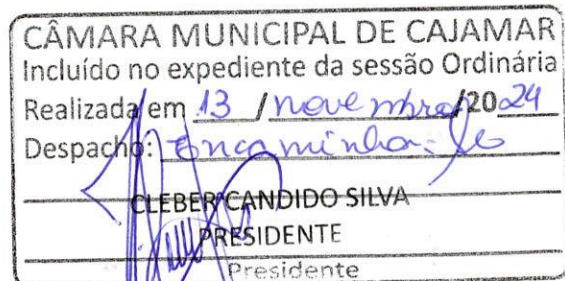 CÂMARA MUNICIPAL DE CAJAMAR
Incluído no expediente da sessão Ordinária
Realizada em 13 / novembro/2024
Despacho: Encaminha-se
CLEBER CANDIDO SILVA
PRESIDENTE
Presidente